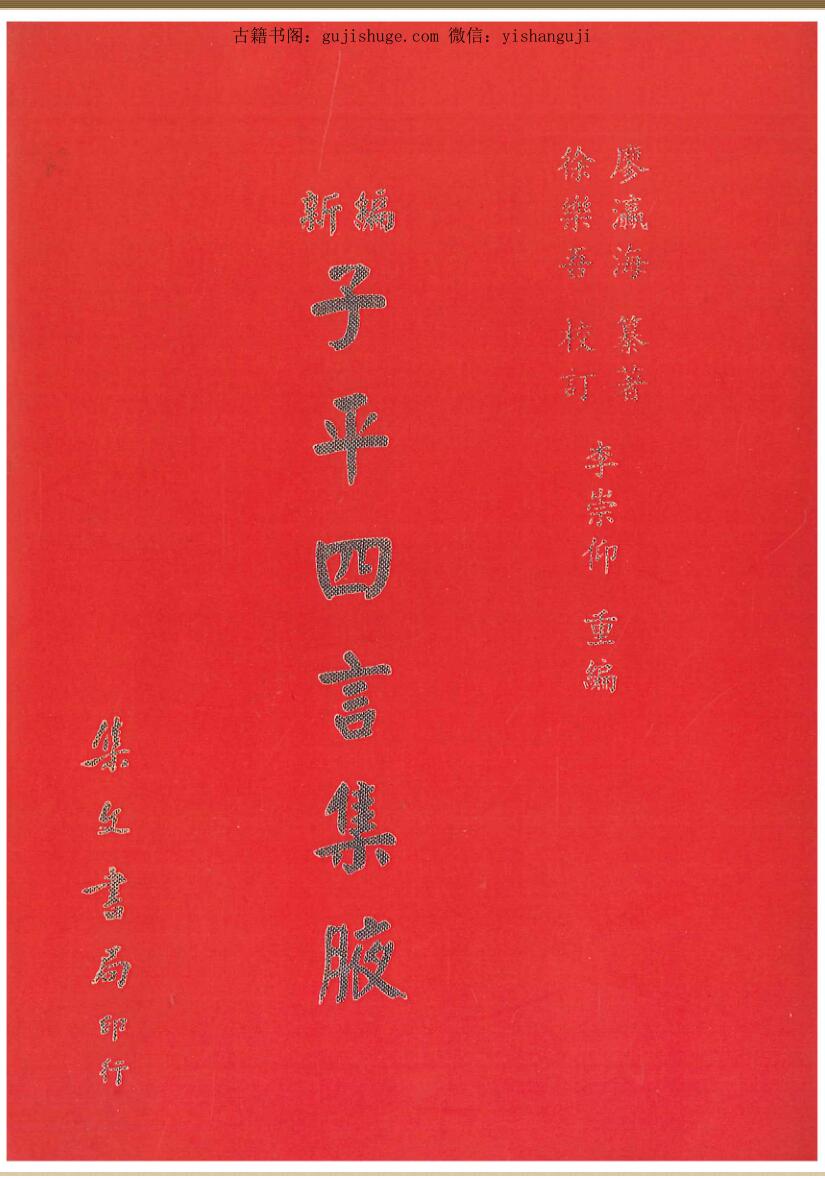 古籍书阁：gujishuge.com 微信：yishanguji
廖瀛海 纂著
徐樂吾 校訂
李崇仰 重編
新編
子平四言集腋
集文書局印行